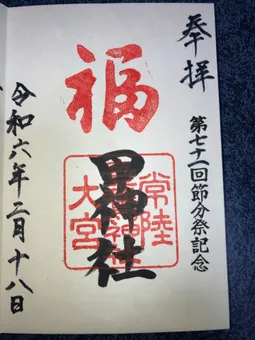 奉拝
第七十一回節分祭記念
福
甲神社
常陸
大宮
令和六年二月十八日